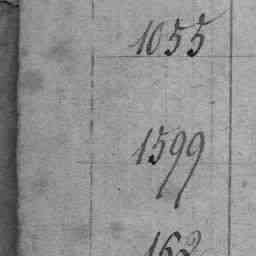 1055
1599
162